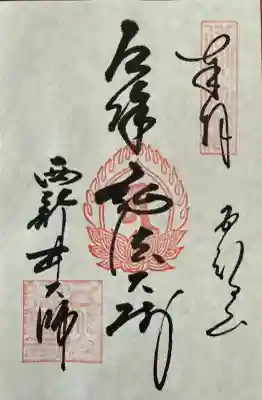 奉拝
厄除 弘法大師
西新井大師